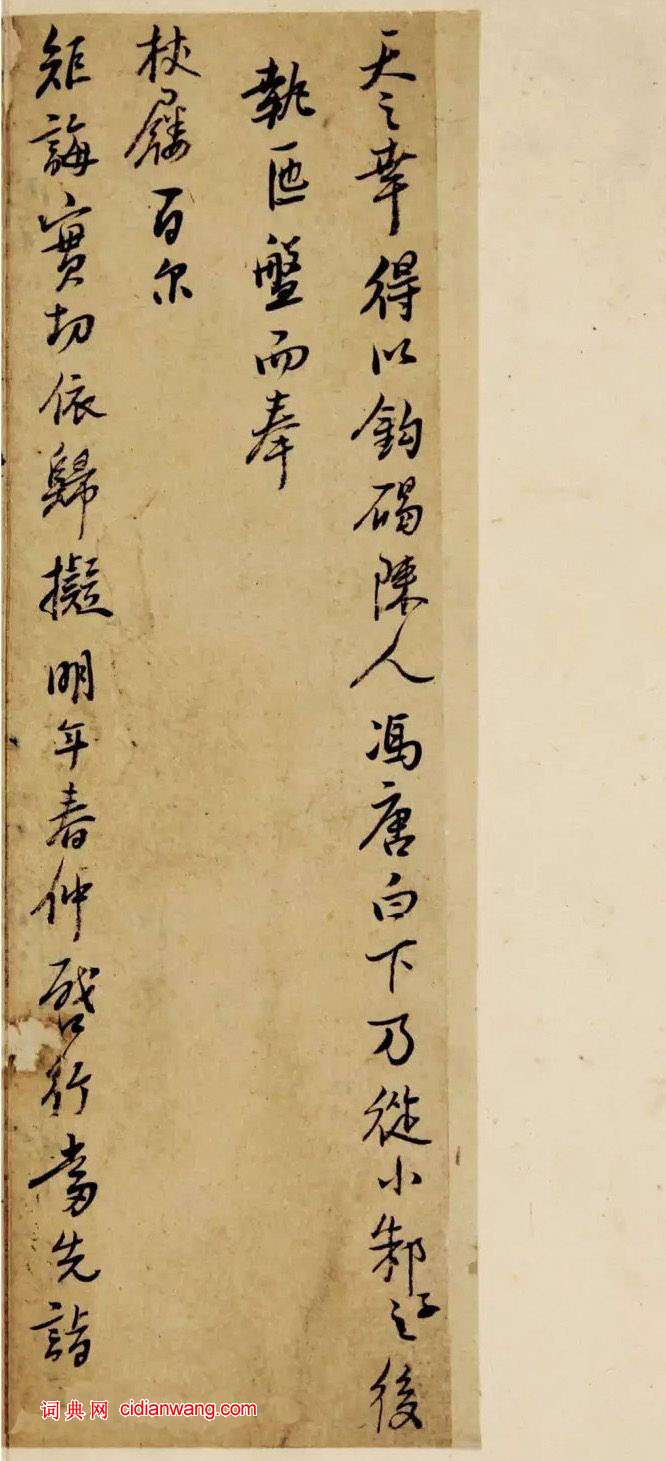 天之幸得以鈞碣陳人馮唐白下乃從小邾子之後
執匜盤而奉
杖屨百尔
矩誨實切依歸擬明年春仲啓行當先詣
词典网 cidianwang.com